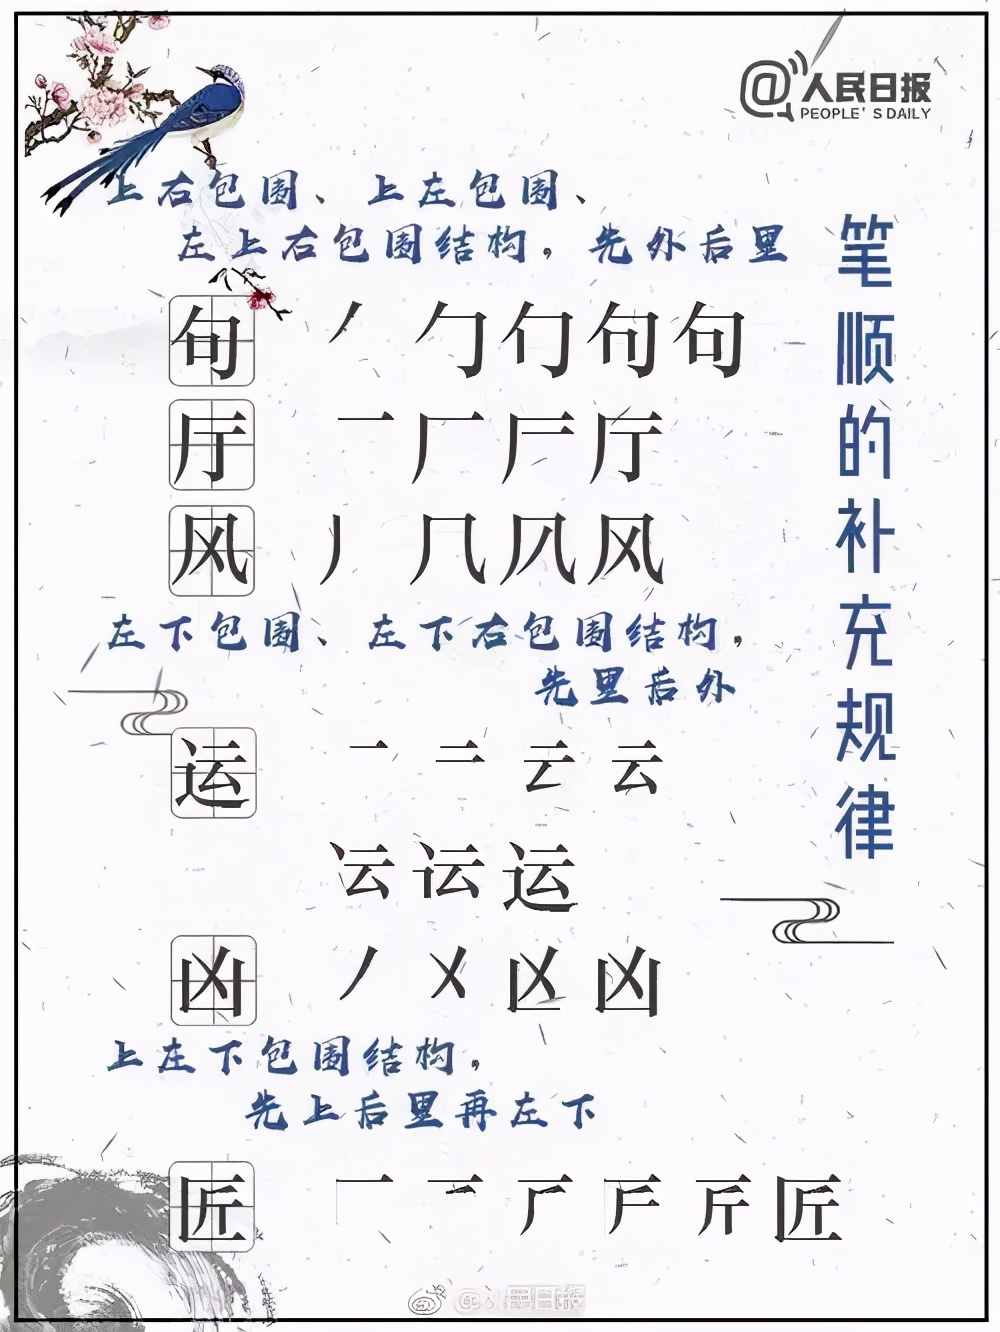 @人民日报
PEOPLE'S DAILY
笔顺的补充规律
上右包围、上左包围、
左上右包围结构，先外后里
句 丿 勹 句 句
厅 一 厂 厅
风 丿 几 风
左下包围、左下右包围结构，
先里后外
运 一 二 云 云
运
凶 丿 㐅 凶
上左下包围结构，
先上后里再左下
匠 一 匠